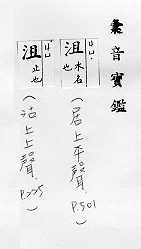 彙音寶鑑
沮 水名也
(居上平聲 P.501)
沮 止也
(沽上上聲 P.225)